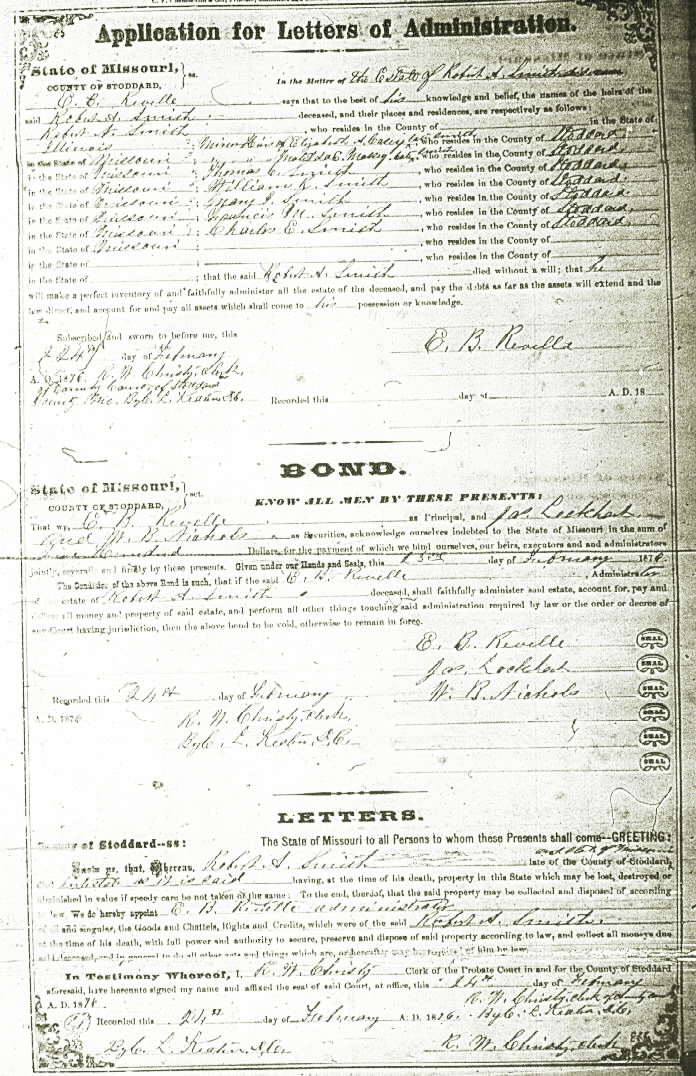 Application for Letters of Administration.
State of Missouri, } ss.
COUNTY OF STODDARD,
In the Matter of the Estate of Robert A. Smith
E. B. Reville says that to the best of his knowledge and belief, the names of the heirs of the
said Robert A. Smith deceased, and their places and residences, are respectively as follows:
Robert N. Smith who resides in the County of in the State of
Illinois ; Minor heirs of Elizabeth A. Casey late Smith who resides in the County of Stoddard
in the State of Missouri ; Matilda C. Massey late Smith, who resides in the County of Stoddard
in the State of Missouri ; Thomas C. Smith , who resides in the County of Stoddard
in the State of Missouri ; William R. Smith , who resides in the County of Stoddard
in the State of Missouri ; Mary J. Smith , who resides in the County of Stoddard
in the State of Missouri ; Francis M. Smith , who resides in the County of Stoddard
in the State of Missouri ; Charles E. Smith , who resides in the County of Stoddard
in the State of Missouri ; , who resides in the County of
in the State of ; , who resides in the County of
in the State of ; that the said Robert A. Smith died without a will; that he
will make a perfect inventory of and faithfully administer all the estate of the deceased, and pay the debts as far as the assets will extend and the
law direct, and account for and pay all assets which shall come to his possession or knowledge.
Subscribed and sworn to before me, this
24th day of February
E. B. Reville
A. D. 1876. R. W. Christy, Clerk
of County Court of Stoddard
County Mo. By C. L. Keaton, D.C.
Recorded this day of A. D. 18
BOND.
State of Missouri, } sct.
COUNTY OF STODDARD,
KNOW ALL MEN BY THESE PRESENTS:
That we, E. B. Reville as Principal, and Jas. Lockhart
and W. B. Nichols as Securities, acknowledge ourselves indebted to the State of Missouri in the sum of
Hundred Dollars, for the payment of which we bind ourselves, our heirs, executors and administrators
jointly, severally and firmly by these presents. Given under our Hands and Seals, this 23rd day of February 1876.
The Condition of the above Bond is such, that if the said E. B. Reville , Administrator
of estate of Robert A. Smith deceased, shall faithfully administer said estate, account for, pay and
deliver all money and property of said estate, and perform all other things touching said administration required by law or the order or decree of
any Court having jurisdiction, then the above bond to be void, otherwise to remain in force.
E. B. Reville SEAL
Jas. Lockhart SEAL
Recorded this 24th day of February W. B. Nichols SEAL
A. D. 1876 R. W. Christy, Clerk SEAL
By C. L. Keaton, D.C. SEAL
SEAL
LETTERS.
County of Stoddard--ss: The State of Missouri to all Persons to whom these Presents shall come--GREETING:
and State of Missouri
Know ye, that, Whereas, Robert A. Smith late of the County of Stoddard,
intestate as it is said having, at the time of his death, property in this State which may be lost, destroyed or
diminished in value if speedy care be not taken of the same: To the end, therefore, that the said property may be collected and disposed of according
to law, We do hereby appoint E. B. Reville administrator
of all and singular, the Goods and Chattels, Rights and Credits, which were of the said Robert A. Smith
at the time of his death, with full power and authority to secure, preserve and dispose of said property according to law, and collect all moneys due
said deceased, and in general to do all other acts and things which are, or hereafter may be required of him by law.
In Testimony Whereof, I, R. W. Christy Clerk of the Probate Court in and for the County of Stoddard
aforesaid, have hereunto signed my name and affixed the seal of said Court, at office, this 24th day of February
A. D. 1876. R. W. Christy, clerk of
By C. L. Keaton, D.C.
Recorded this 24th day of February A. D. 1876.
By C. L. Keaton, D.C. R. W. Christy, clerk